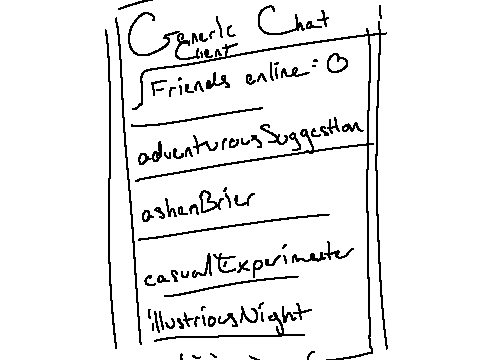 Generic Chat
Client
Friends online: 0
adventurousSuggestion
ashenBrier
casualExperimenter
illustriousNight